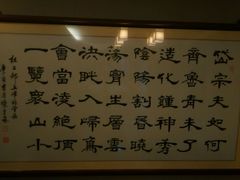 岱宗夫如何
齊魯青未了
造化鍾神秀
陰陽割昏曉
蕩胷生層雲
決眦入歸鳥
會當凌絕頂
一覽衆山小